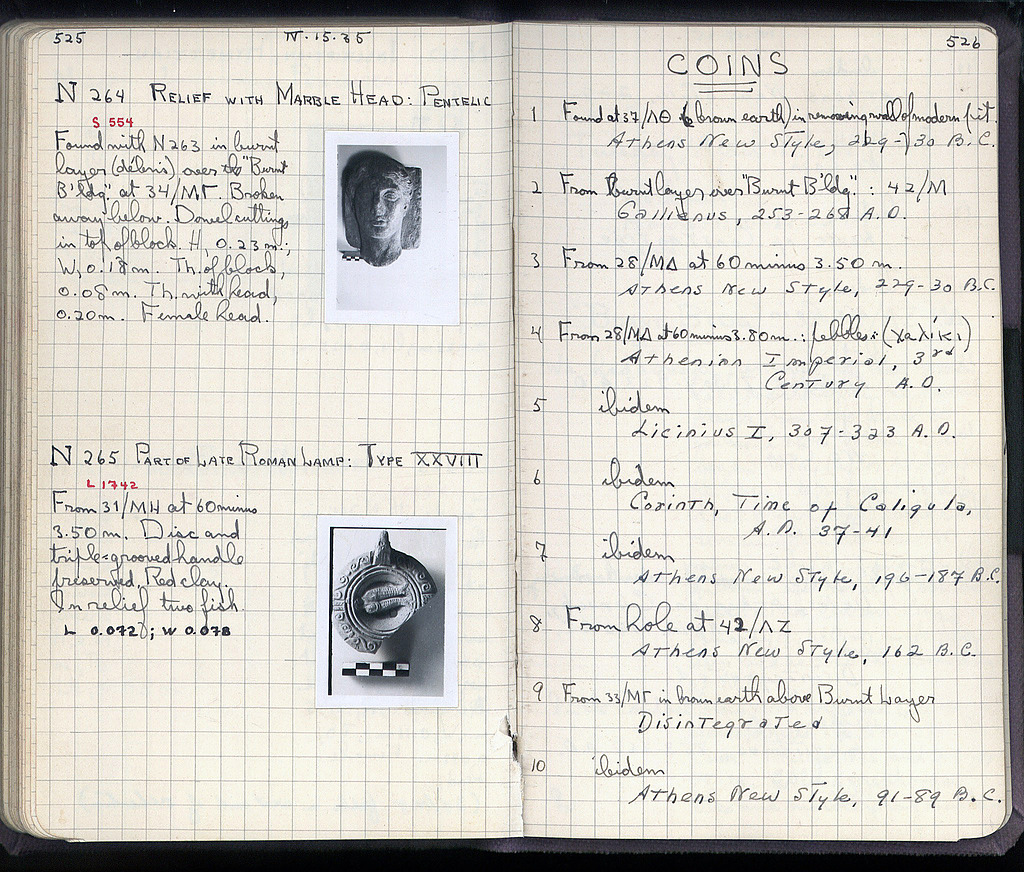 525
IV·15·35
N 264 RELIEF WITH MARBLE HEAD: PENTELIC
S 554
Found with N263 in burnt
layer (débris) over the "Burnt
B'ldg." at 34/ΜΓ. Broken
away below. Dowel cuttings
in top of block. H, 0.23 m.;
W, 0.18 m. Th. of block,
0.08 m. Th. with head,
0.20 m. Female head.
N 265 PART OF LATE ROMAN LAMP: TYPE XXVIII
L 1742
From 31/ΜΗ at 60 minus
3.50 m. Disc and
triple-grooved handle
preserved. Red clay.
In relief two fish.
L 0.072; W 0.078
526
COINS
1 Found at 37/ΛΘ (brown earth) in removing wall of modern pit.
Athens New Style, 229-30 B.C.
2 From burnt layer over "Burnt B'ldg." : 42/Μ
Gallienus, 253-268 A.D.
3 From 28/ΜΔ at 60 minus 3.50 m.
Athens New Style, 229-30 B.C.
4 From 28/ΜΔ at 60 minus 3.80 m.: pebbles: (χαλίκι)
Athenian Imperial, 3rd
Century A.D.
5 ibidem
Licinius I, 307-323 A.D.
6 ibidem
Corinth, Time of Caligula,
A.D. 37-41
7 ibidem
Athens New Style, 196-187 B.C.
8 From hole at 42/ΛΖ
Athens New Style, 162 B.C.
9 From 33/ΜΓ in brown earth above Burnt Layer
Disintegrated
10 ibidem
Athens New Style, 91-89 B.C.